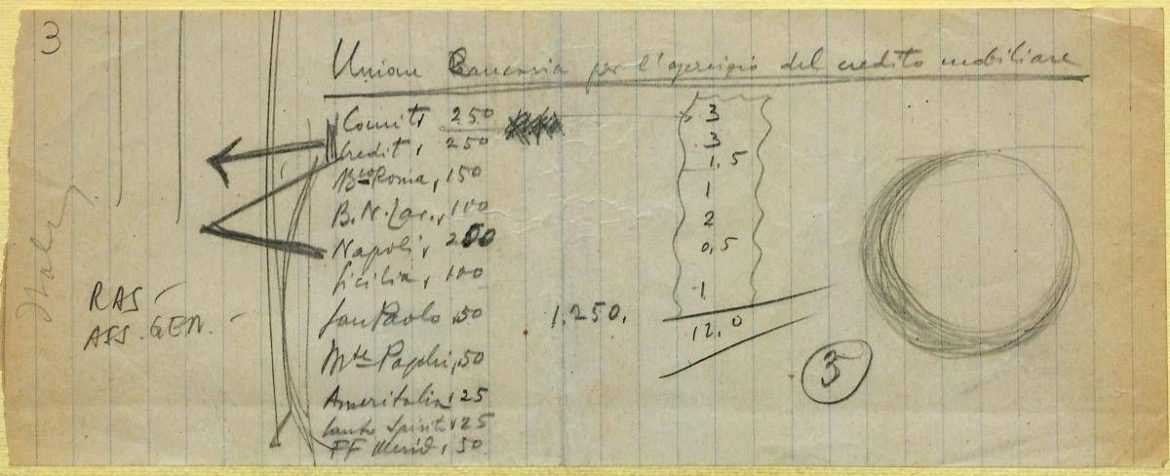 3
Unione Bancaria per l'esercizio del credito mobiliare
Comit, 250
Credit, 250
Bco Roma, 150
B.N.Lav., 100
Napoli, 200
Sicilia, 100
San Paolo, 50
Mte Paschi, 50
Ameritalia, 25
Santo Spirito, 25
FF Merid, 50
1.250.
3
3
1,5
1
2
0,5
1
12,0
3
RAS -
ASS. GEN. -
Italy